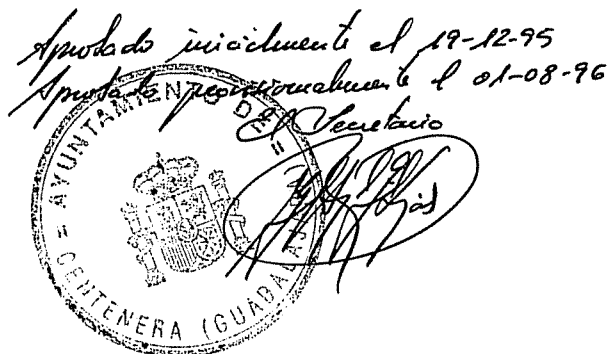 Aprobado inicialmente el 19-12-95
Aprobado provisionalmente el 01-08-96
El Secretario
= AYUNTAMIENTO DE =
CENTENERA (GUADALAJARA)